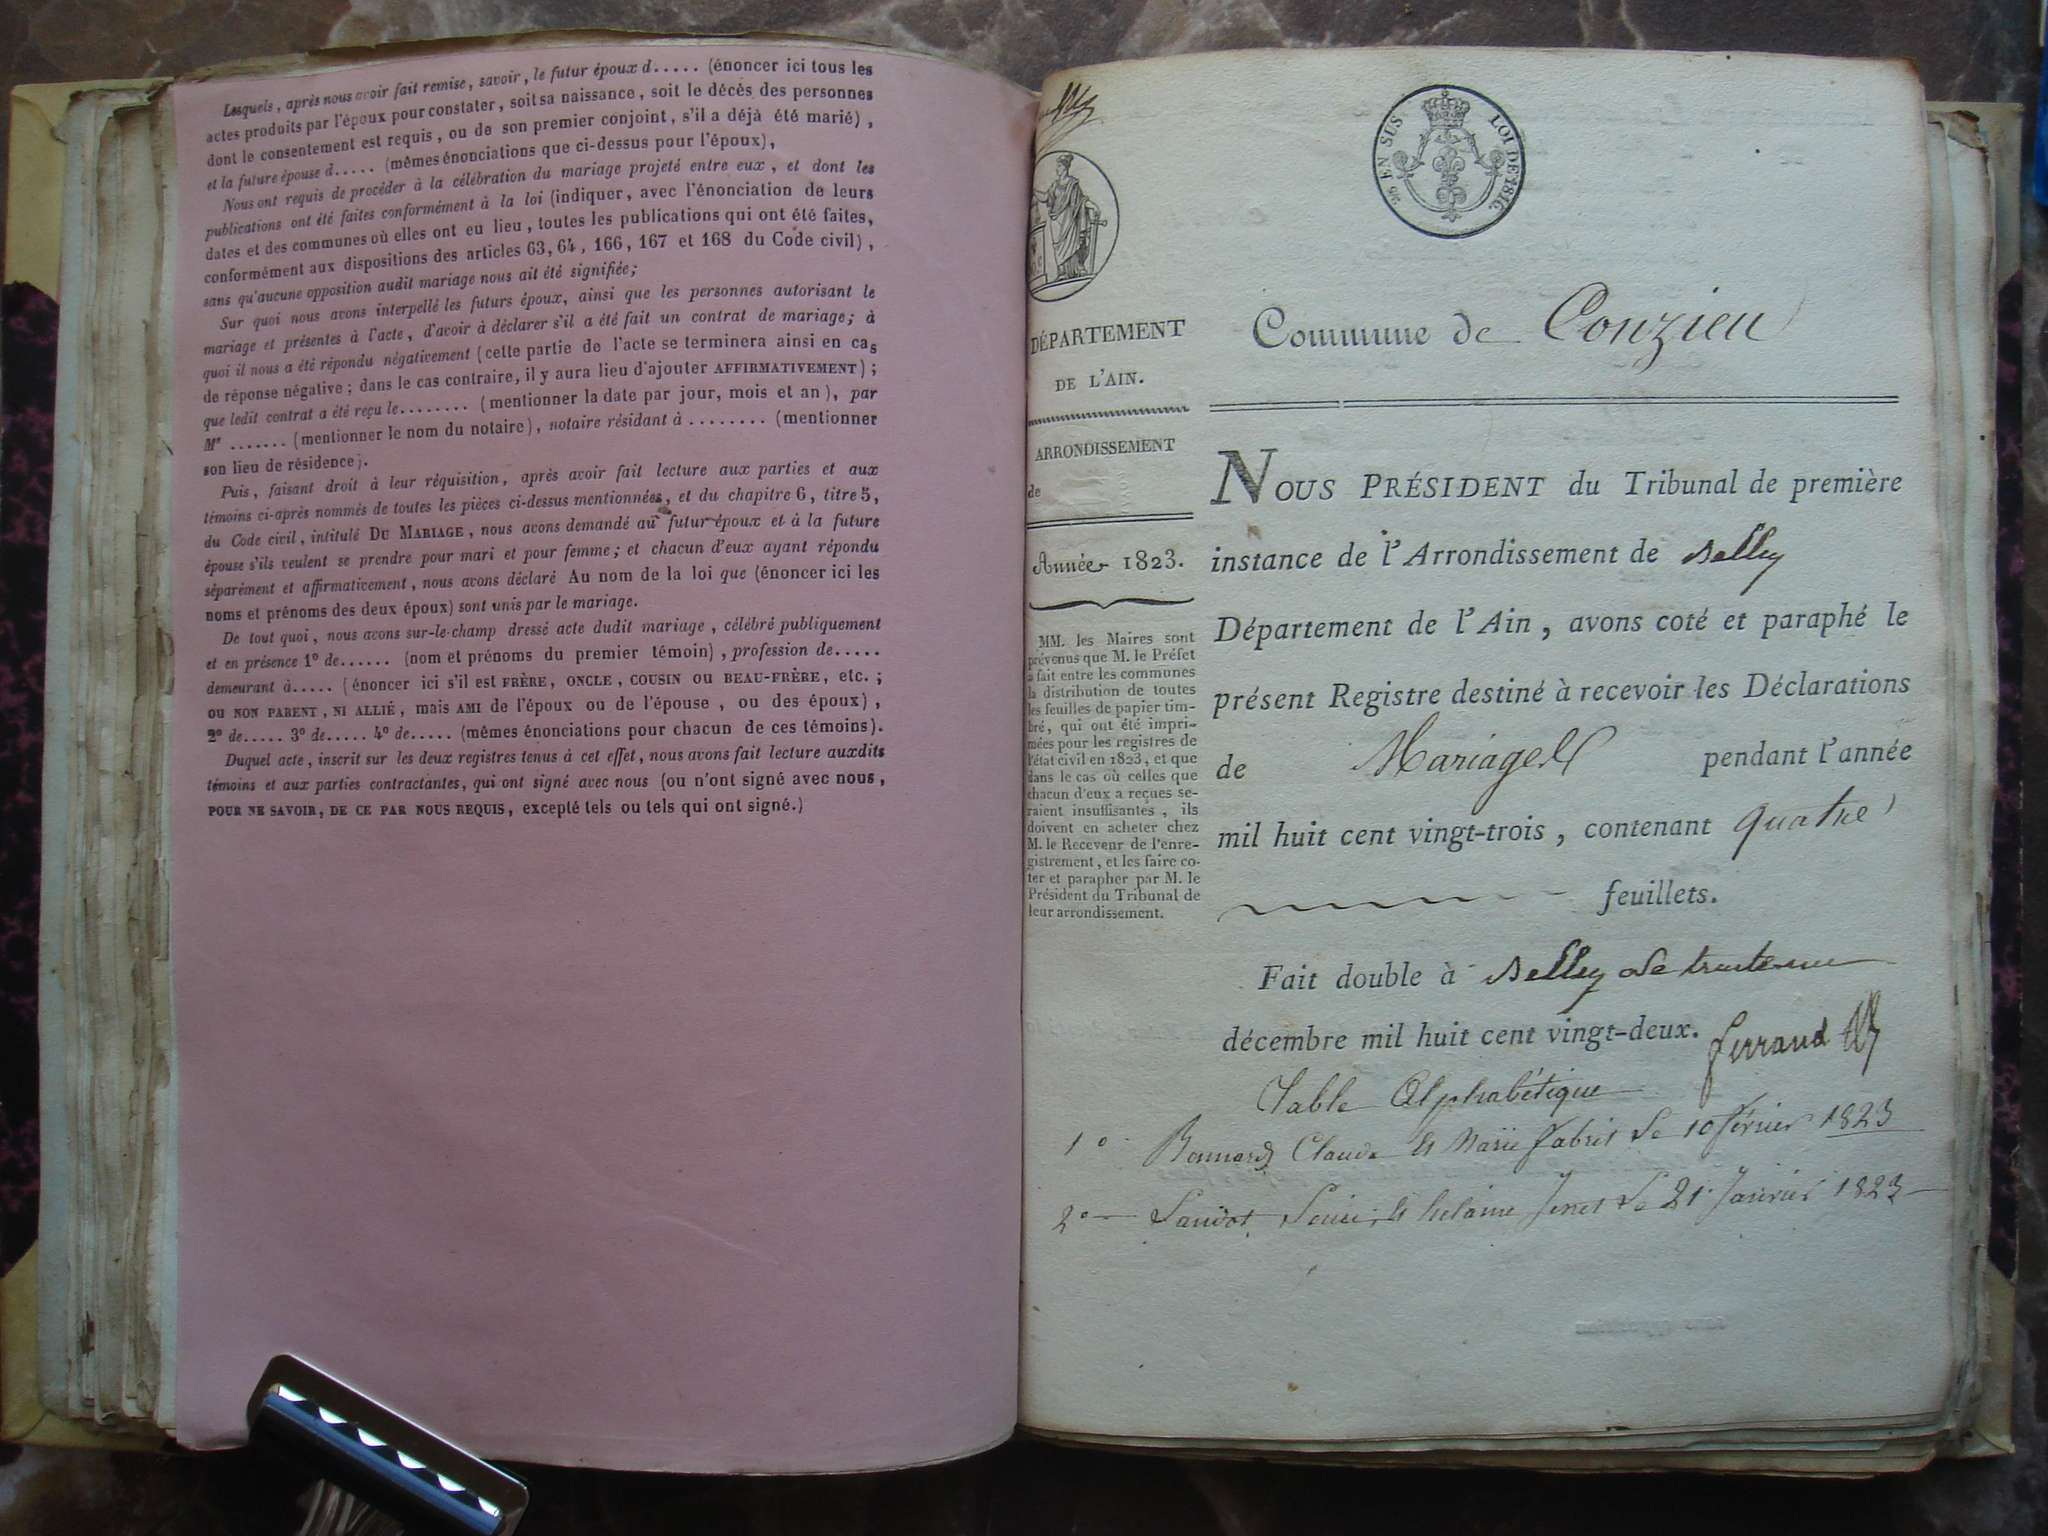 Lesquels, après nous avoir fait remise, savoir, le futur époux d..... (énoncer ici tous les
actes produits par l'époux pour constater, soit sa naissance, soit le décès des personnes
dont le consentement est requis, ou de son premier conjoint, s'il a déjà été marié),
et la future épouse d..... (mêmes énonciations que ci-dessus pour l'époux),
Nous ont requis de procéder à la célébration du mariage projeté entre eux, et dont les
publications ont été faites conformément à la loi (indiquer, avec l'énonciation de leurs
dates et des communes où elles ont eu lieu, toutes les publications qui ont été faites,
conformément aux dispositions des articles 63, 64, 166, 167 et 168 du Code civil),
sans qu'aucune opposition audit mariage nous ait été signifiée;
Sur quoi nous avons interpellé les futurs époux, ainsi que les personnes autorisant le
mariage et présentes à l'acte, d'avoir à déclarer s'il a été fait un contrat de mariage; à
quoi il nous a été répondu négativement (cette partie de l'acte se terminera ainsi en cas
de réponse négative; dans le cas contraire, il y aura lieu d'ajouter AFFIRMATIVEMENT);
que ledit contrat a été reçu le........ (mentionner la date par jour, mois et an), par
Mᵉ ....... (mentionner le nom du notaire), notaire résidant à ........ (mentionner
son lieu de résidence).
Puis, faisant droit à leur réquisition, après avoir fait lecture aux parties et aux
témoins ci-après nommés de toutes les pièces ci-dessus mentionnées, et du chapitre 6, titre 5,
du Code civil, intitulé DU MARIAGE, nous avons demandé au futur époux et à la future
épouse s'ils veulent se prendre pour mari et pour femme; et chacun d'eux ayant répondu
séparément et affirmativement, nous avons déclaré Au nom de la loi que (énoncer ici les
noms et prénoms des deux époux) sont unis par le mariage.
De tout quoi, nous avons sur-le-champ dressé acte dudit mariage, célébré publiquement
et en présence 1º de...... (nom et prénoms du premier témoin), profession de.....
demeurant à..... (énoncer ici s'il est FRÈRE, ONCLE, COUSIN ou BEAU-FRÈRE, etc.;
OU NON PARENT, NI ALLIÉ, mais AMI de l'époux ou de l'épouse, ou des époux),
2º de..... 3º de..... 4º de..... (mêmes énonciations pour chacun de ces témoins).
Duquel acte, inscrit sur les deux registres tenus à cet effet, nous avons fait lecture auxdits
témoins et aux parties contractantes, qui ont signé avec nous (ou n'ont signé avec nous,
POUR NE SAVOIR, DE CE PAR NOUS REQUIS, excepté tels ou tels qui ont signé.)
EN SUS LOI DE 1816.
DÉPARTEMENT
DE L'AIN.
ARRONDISSEMENT
de
Année 1823.
MM. les Maires sont
prévenus que M. le Préfet
a fait entre les communes
la distribution de toutes
les feuilles de papier tim-
bré, qui ont été impri-
mées pour les registres de
l'état civil en 1823, et que
dans le cas où celles que
chacun d'eux a reçues se-
raient insuffisantes, ils
doivent en acheter chez
M. le Receveur de l'enre-
gistrement, et les faire co-
ter et parapher par M. le
Président du Tribunal de
leur arrondissement.
Commune de Conzieu
NOUS PRÉSIDENT du Tribunal de première
instance de l'Arrondissement de Belley
Département de l'Ain, avons coté et paraphé le
présent Registre destiné à recevoir les Déclarations
de Mariages pendant l'année
mil huit cent vingt-trois, contenant quatre
feuillets.
Fait double à Belley le trente un
décembre mil huit cent vingt-deux. Ferrand
Table Alphabétique
1º Bonnard Claude et Marie Fabris le 10 février 1823
2º Louise et helaine le 21 Janvier 1823